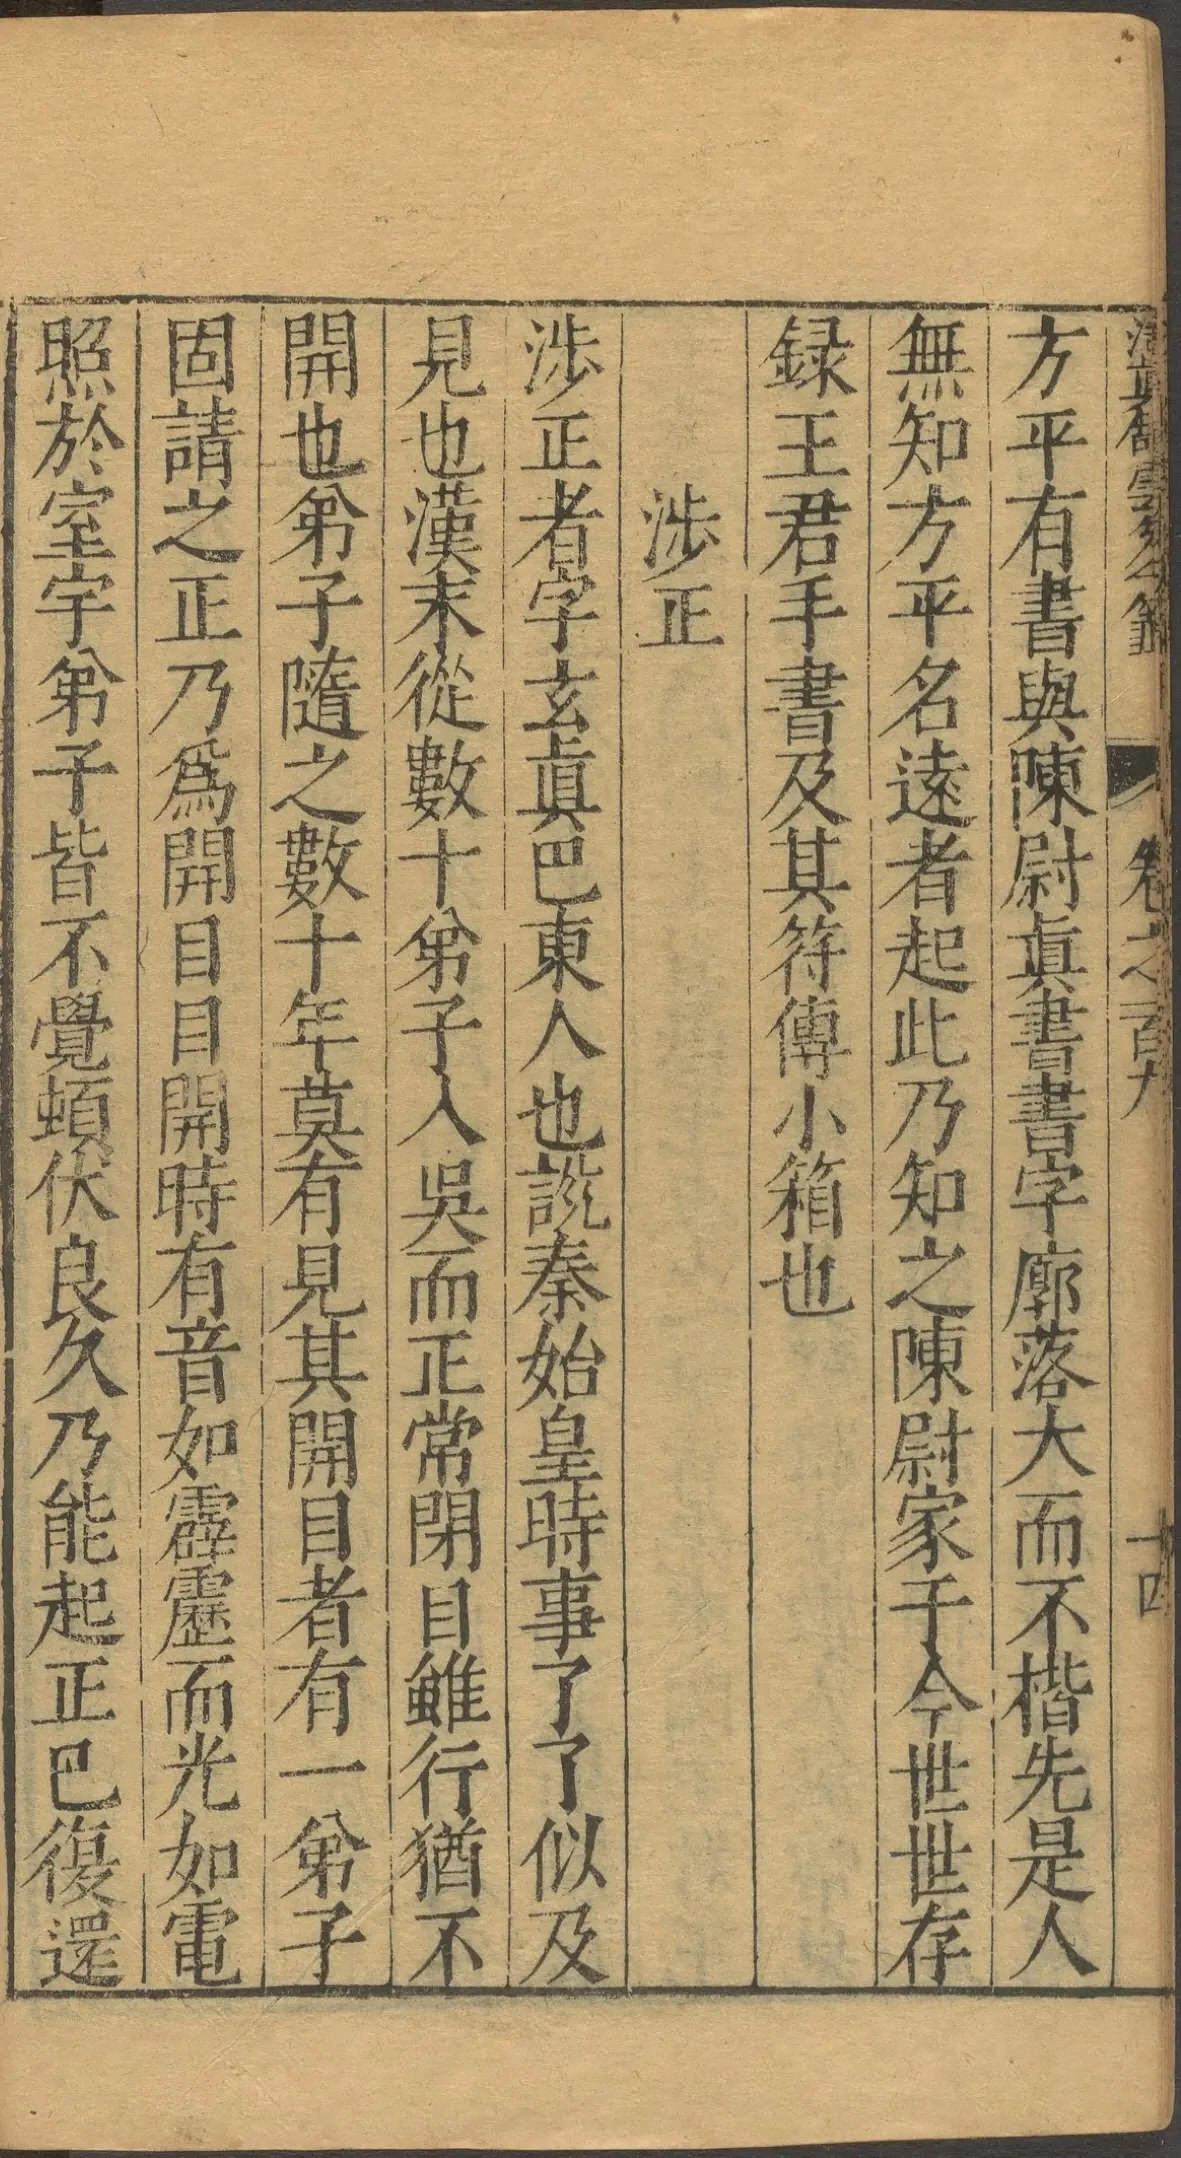 清眞館雲笈七籤 卷之一百九 十四
方平有書與陳尉眞書書字廓落大而不楷先是人
無知方平名遠者起此乃知之陳尉家于今世世存
録王君手書及其符傳小箱也
涉正
涉正者字玄眞巴東人也說秦始皇時事了了似及
見也漢末從數十弟子入吳而正常閉目雖行猶不
開也弟子隨之數十年莫有見其開目者有一弟子
固請之正乃爲開目目開時有音如霹靂而光如電
照於室宇弟子皆不覺頓伏良久乃能起正巳復還